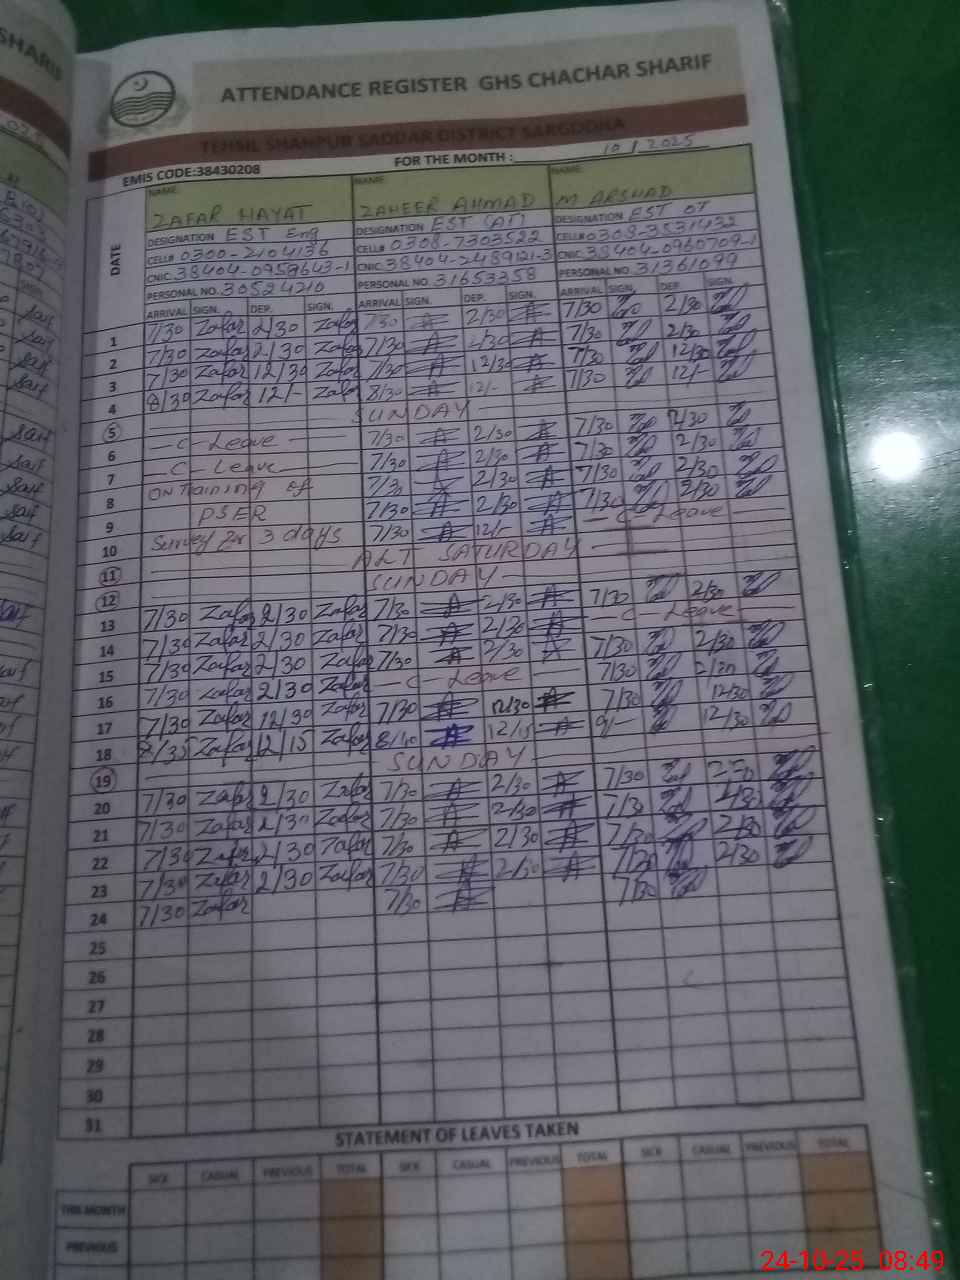 ATTENDANCE REGISTER GHS CHACHAR SHARIF
TEHSIL SHAHPUR SADDAR DISTRICT SARGODHA
EMIS CODE:38430208 FOR THE MONTH : 10/2025
DATE NAME: ZAFAR HAYAT NAME: ZAHEER AHMAD NAME: M ARSHAD
DESIGNATION EST Eng DESIGNATION EST (AT) DESIGNATION EST OT
CELL# 0300-2104136 CELL# 0308-7303522 CELL# 0308-3531432
CNIC: 38404-0959643-1 CNIC: 38404-2489121-3 CNIC: 38404-0960709-1
PERSONAL NO. 30524210 PERSONAL NO. 31653358 PERSONAL NO. 31361099
ARRIVAL SIGN. DEP. SIGN. ARRIVAL SIGN. DEP. SIGN. ARRIVAL SIGN. DEP. SIGN.
1 7/30 Zafar 2/30 Zafar 7/30 2/30 7/30 2/30
2 7/30 Zafar 2/30 Zafar 7/30 2/30 7/30 2/30
3 7/30 Zafar 12/30 Zafar 7/30 12/30 7/30 12/30
4 8/30 Zafar 12/- Zafar 8/30 12/- 7/30 12/-
5 SUNDAY
6 C-Leave 7/30 2/30 7/30 2/30
7 C-Leave 7/30 2/30 7/30 2/30
8 ON Training of 7/30 2/30 7/30 2/30
9 PSER 7/30 2/30 7/30 2/30
10 Survey for 3 days 7/30 12/- C-Leave
11 ALT SATURDAY
12 SUNDAY
13 7/30 Zafar 2/30 Zafar 7/30 2/30 7/30 2/30
14 7/30 Zafar 2/30 Zafar 7/30 2/30 C-Leave
15 7/30 Zafar 2/30 Zafar 7/30 2/30 7/30 2/30
16 7/30 Zafar 2/30 Zafar C-Leave 7/30 2/30
17 7/30 Zafar 12/30 Zafar 7/30 12/30 7/30 12/30
18 8/35 Zafar 12/15 Zafar 8/40 12/15 9/- 12/30
19 SUNDAY
20 7/30 Zafar 2/30 Zafar 7/30 2/30 7/30 2/30
21 7/30 Zafar 2/30 Zafar 7/30 2/30 7/30 2/30
22 7/30 Zafar 2/30 Zafar 7/30 2/30 7/30 2/30
23 7/30 Zafar 2/30 Zafar 7/30 2/30 7/30 2/30
24 7/30 Zafar 7/30 7/30
25
26
27
28
29
30
31
STATEMENT OF LEAVES TAKEN
SICK CASUAL PREVIOUS TOTAL SICK CASUAL PREVIOUS TOTAL SICK CASUAL PREVIOUS TOTAL
THIS MONTH
PREVIOUS
24-10-25 08:49